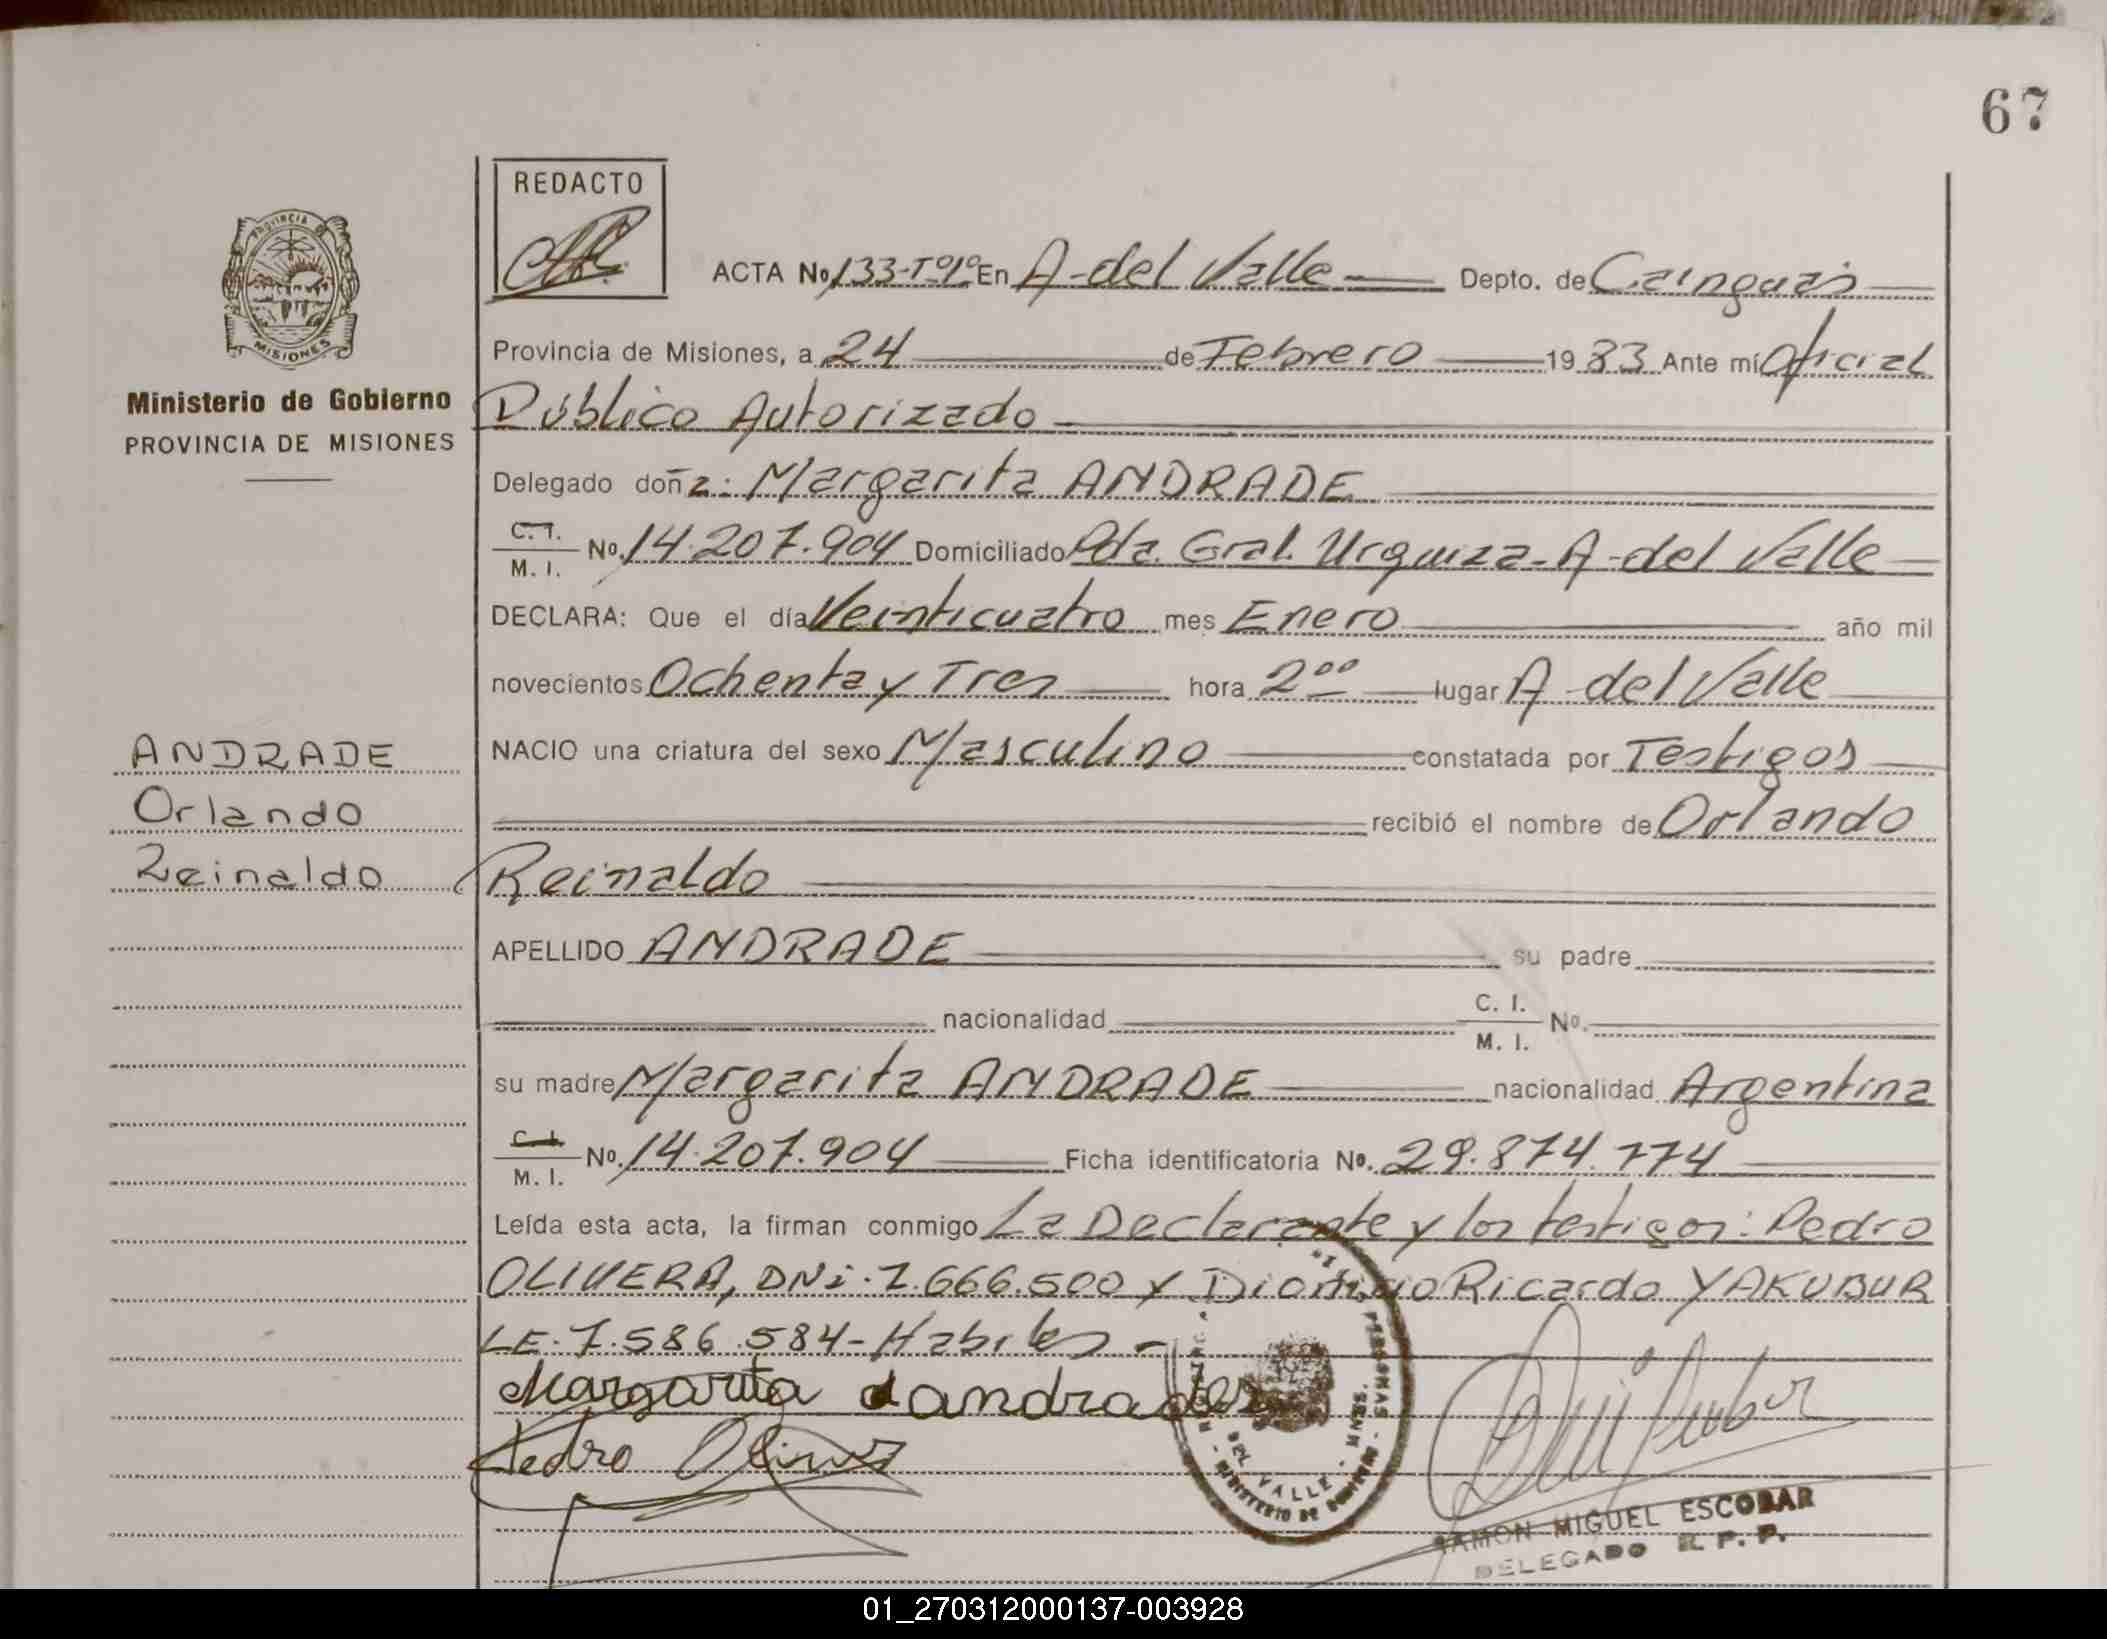 67
REDACTO
PROVINCIA
MISIONES
Ministerio de Gobierno
PROVINCIA DE MISIONES
ACTA No 133-Tº1º En A-del Valle Depto. de Cainguás
Provincia de Misiones, a 24 de Febrero 1983 Ante mí Oficial
Público Autorizado
Delegado doña: Margarita ANDRADE
C. I. / M. I. No. 14.207.904 Domiciliado Pda. Gral. Urquiza-A-del Valle
DECLARA: Que el día Veinticuatro mes Enero año mil
novecientos Ochenta y Tres hora 2⁰⁰ lugar A-del Valle
NACIO una criatura del sexo Masculino constatada por Testigos
recibió el nombre de Orlando
Reinaldo
ANDRADE
Orlando
Reinaldo
APELLIDO ANDRADE su padre
nacionalidad C. I. / M. I. No.
su madre Margarita ANDRADE nacionalidad Argentina
C. I. / M. I. No. 14.207.904 Ficha identificatoria No. 29.874.774
Leída esta acta, la firman conmigo La Declarante y los testigos: Pedro
OLIVERA, DNi. 7.666.500 y Dionisio Ricardo YAKUBUR
LE. 7.586.584-Habiles-
Margarita andrade
Pedro
PERSONAS
DEL VALLE - MNES.
MINISTERIO DE GOBIERNO
RAMON MIGUEL ESCOBAR
DELEGADO R. P. P.
01_270312000137-003928